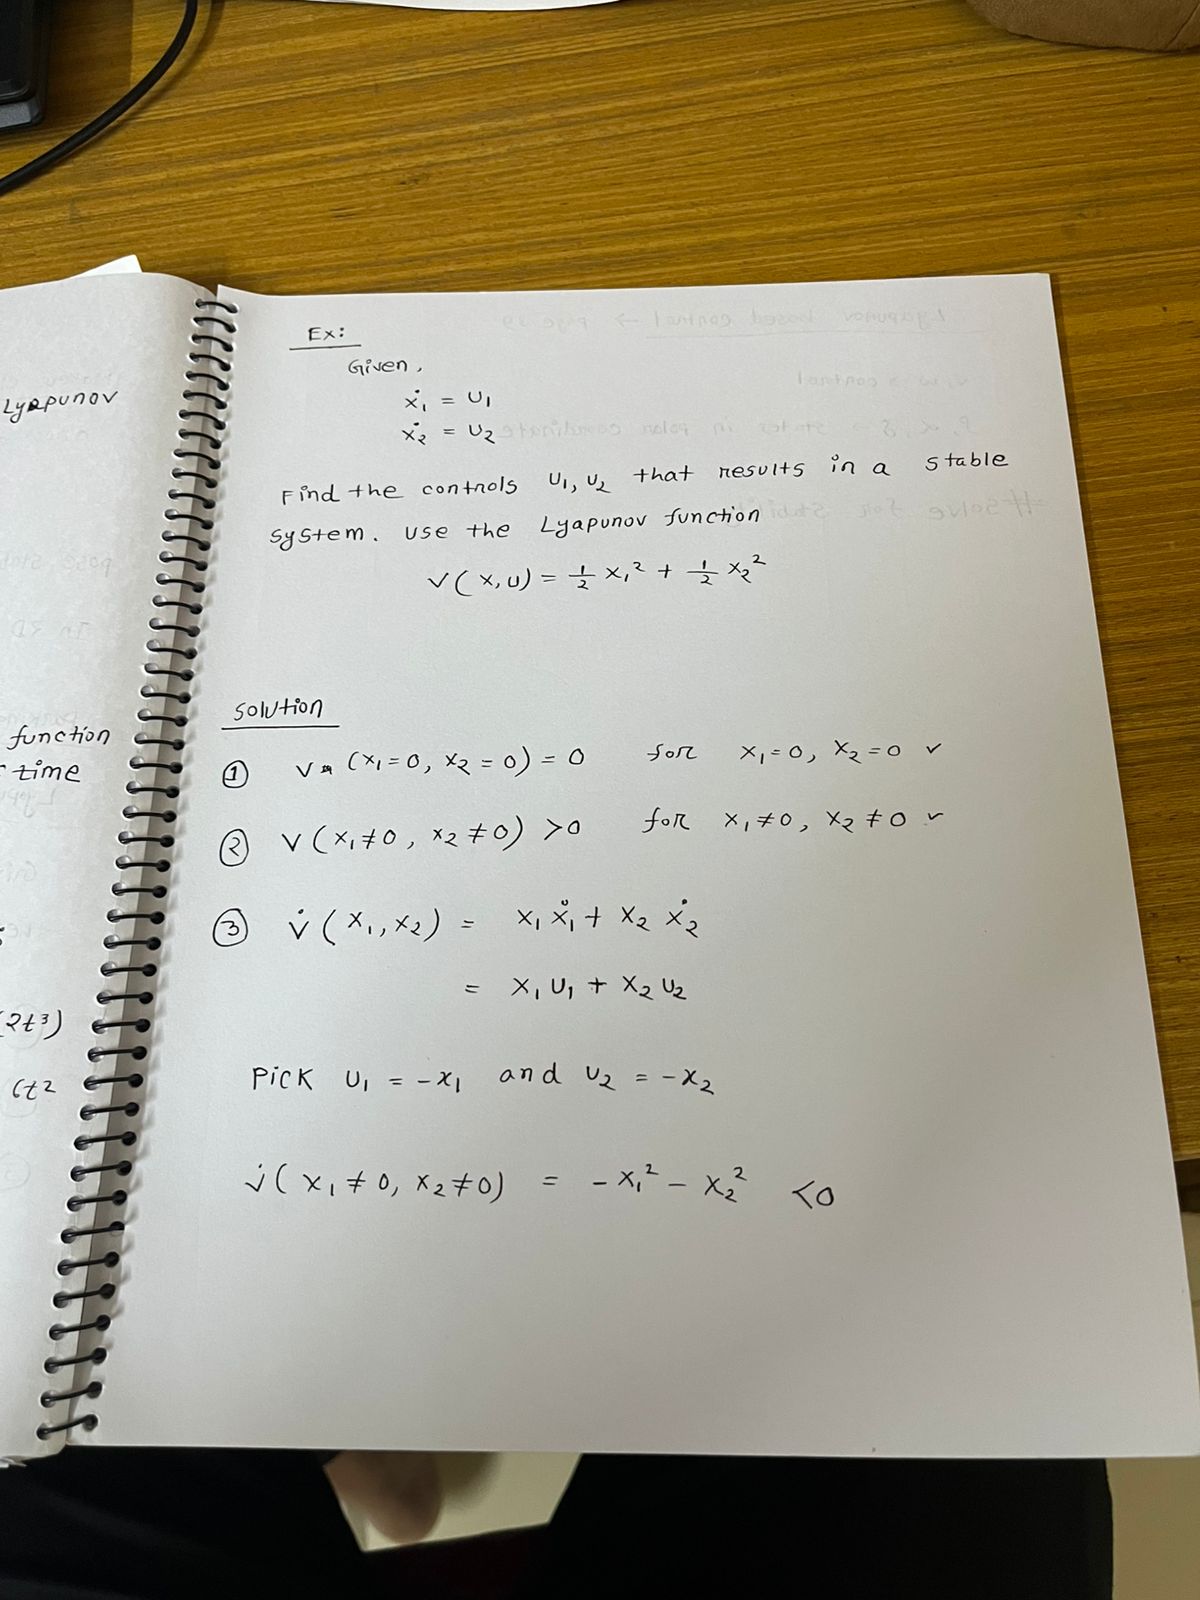 Lyapunov
function
time
(2t³)
6t²
Ex:
Given,
ẋ₁ = U₁
ẋ₂ = U₂
Find the controls U₁, U₂ that results in a stable
system. Use the Lyapunov function
V(x,u) = ½ x₁² + ½ x₂²
Solution
① V (x₁=0, x₂=0) = 0 for x₁=0, x₂=0 ✓
② V (x₁≠0, x₂≠0) >0 for x₁≠0, x₂≠0 ✓
③ V̇ (x₁,x₂) = x₁ẋ₁ + x₂ẋ₂
= x₁U₁ + x₂U₂
Pick U₁ = -x₁ and U₂ = -x₂
V̇(x₁≠0, x₂≠0) = -x₁² - x₂² <0